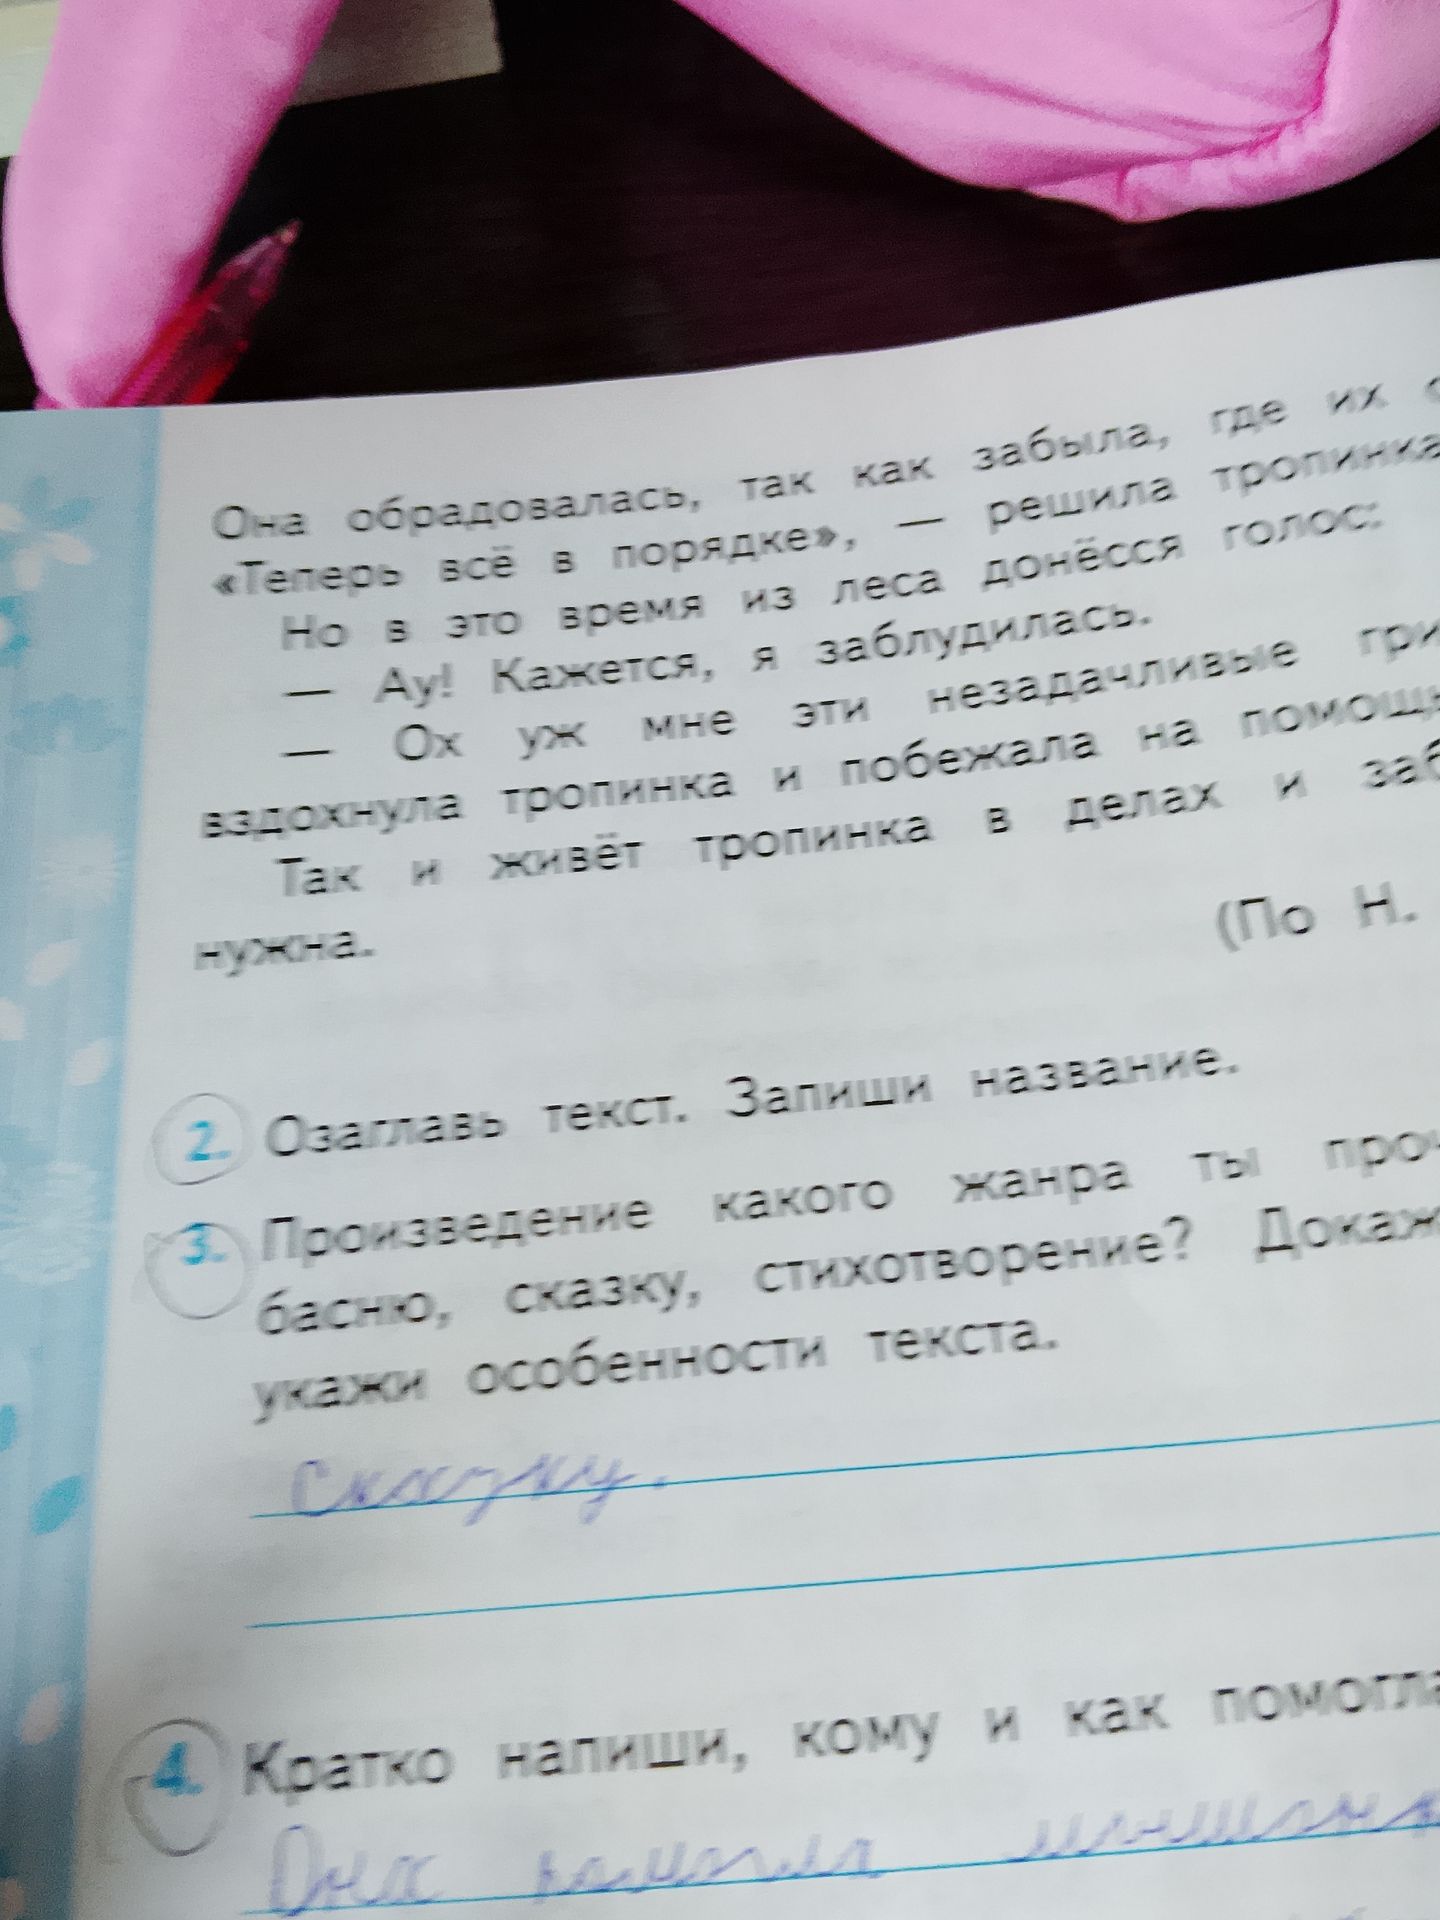 Она обрадовалась, так как забыла, где их
«Теперь всё в порядке», — решила тропинка
Но в это время из леса донёсся голос:
— Ау! Кажется, я заблудилась.
— Ох уж мне эти незадачливые гри
вздохнула тропинка и побежала на помощь
Так и живёт тропинка в делах и заб
нужна.
(По Н.
2. Озаглавь текст. Запиши название.
3. Произведение какого жанра ты проч
басню, сказку, стихотворение? Докаж
укажи особенности текста.
Сказку.
4. Кратко напиши, кому и как помогла
Она помогла